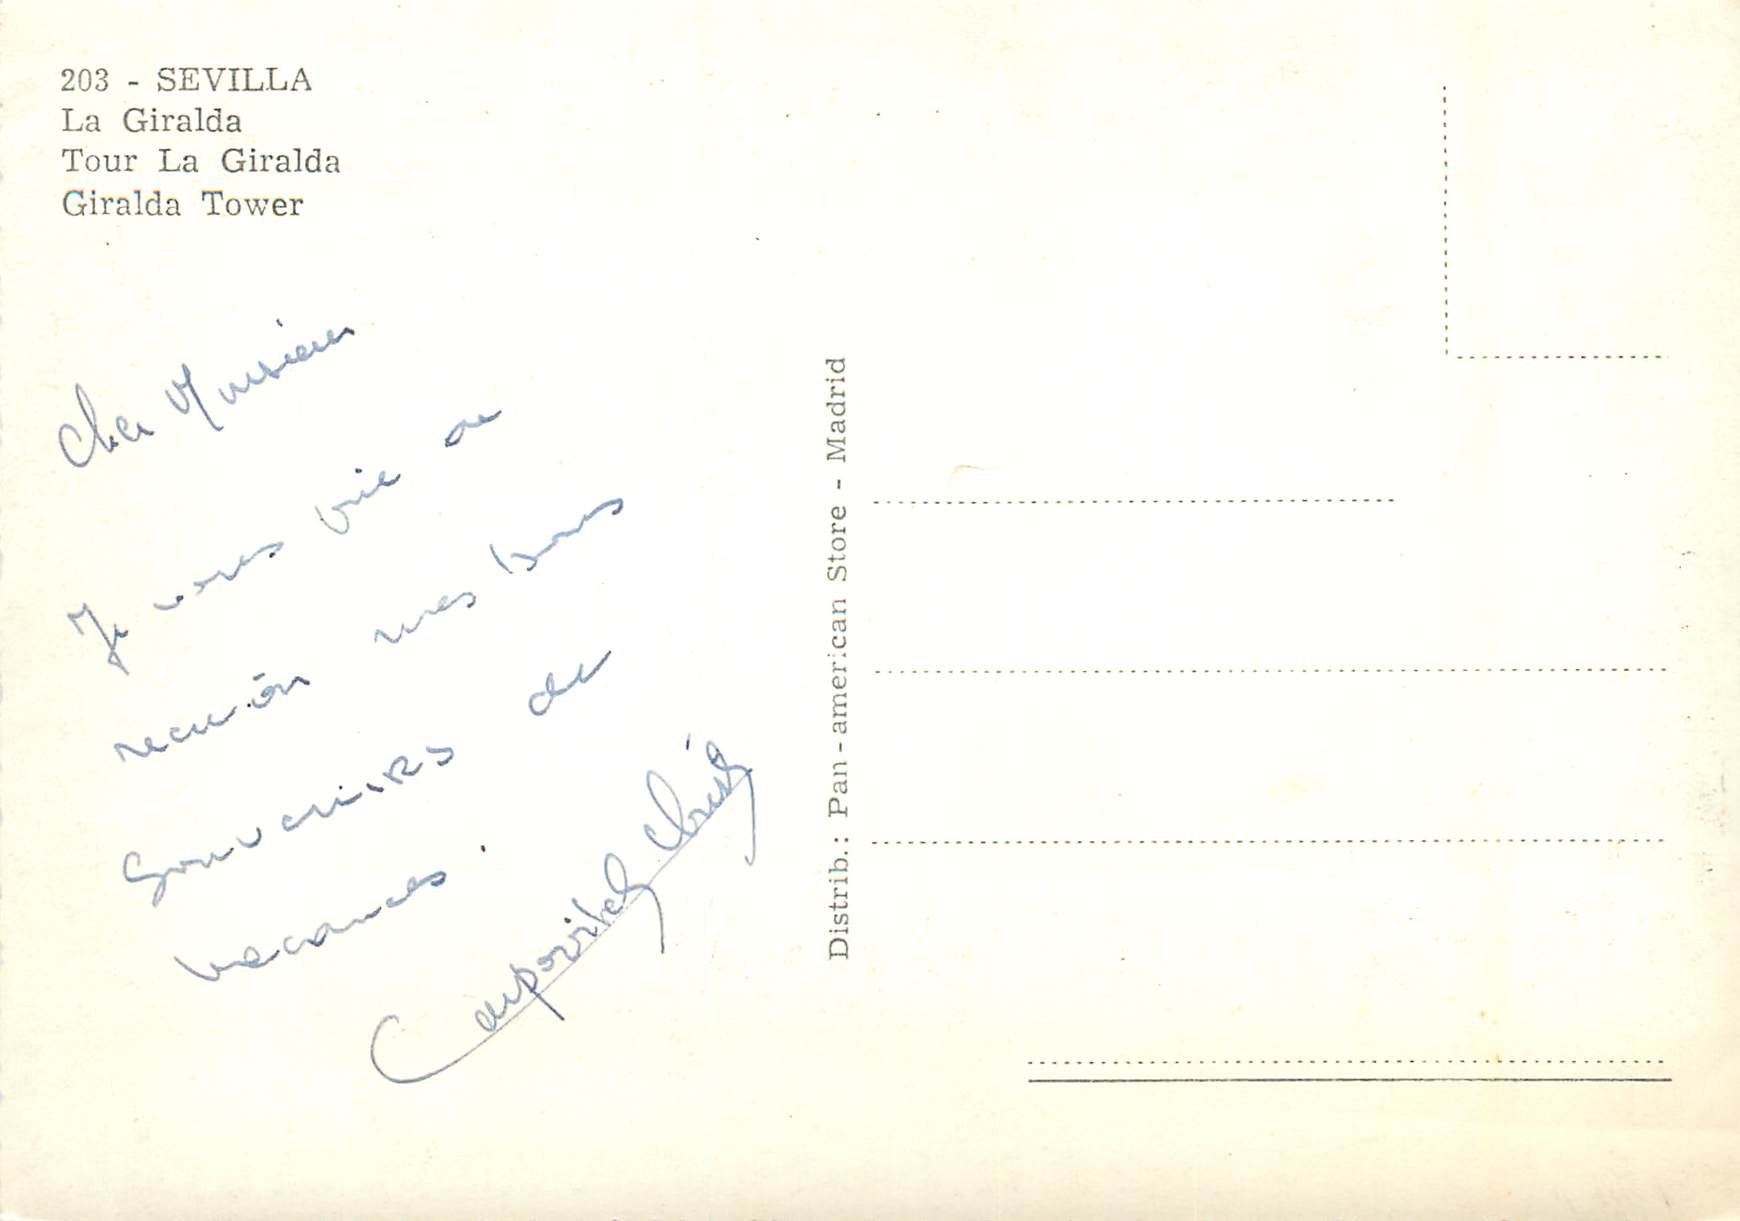 203 - SEVILLA
La Giralda
Tour La Giralda
Giralda Tower
Cher Monsieur
Je vous prie de
recevoir mes bons
souvenirs de
vacances.
Distrib.: Pan-american Store - Madrid